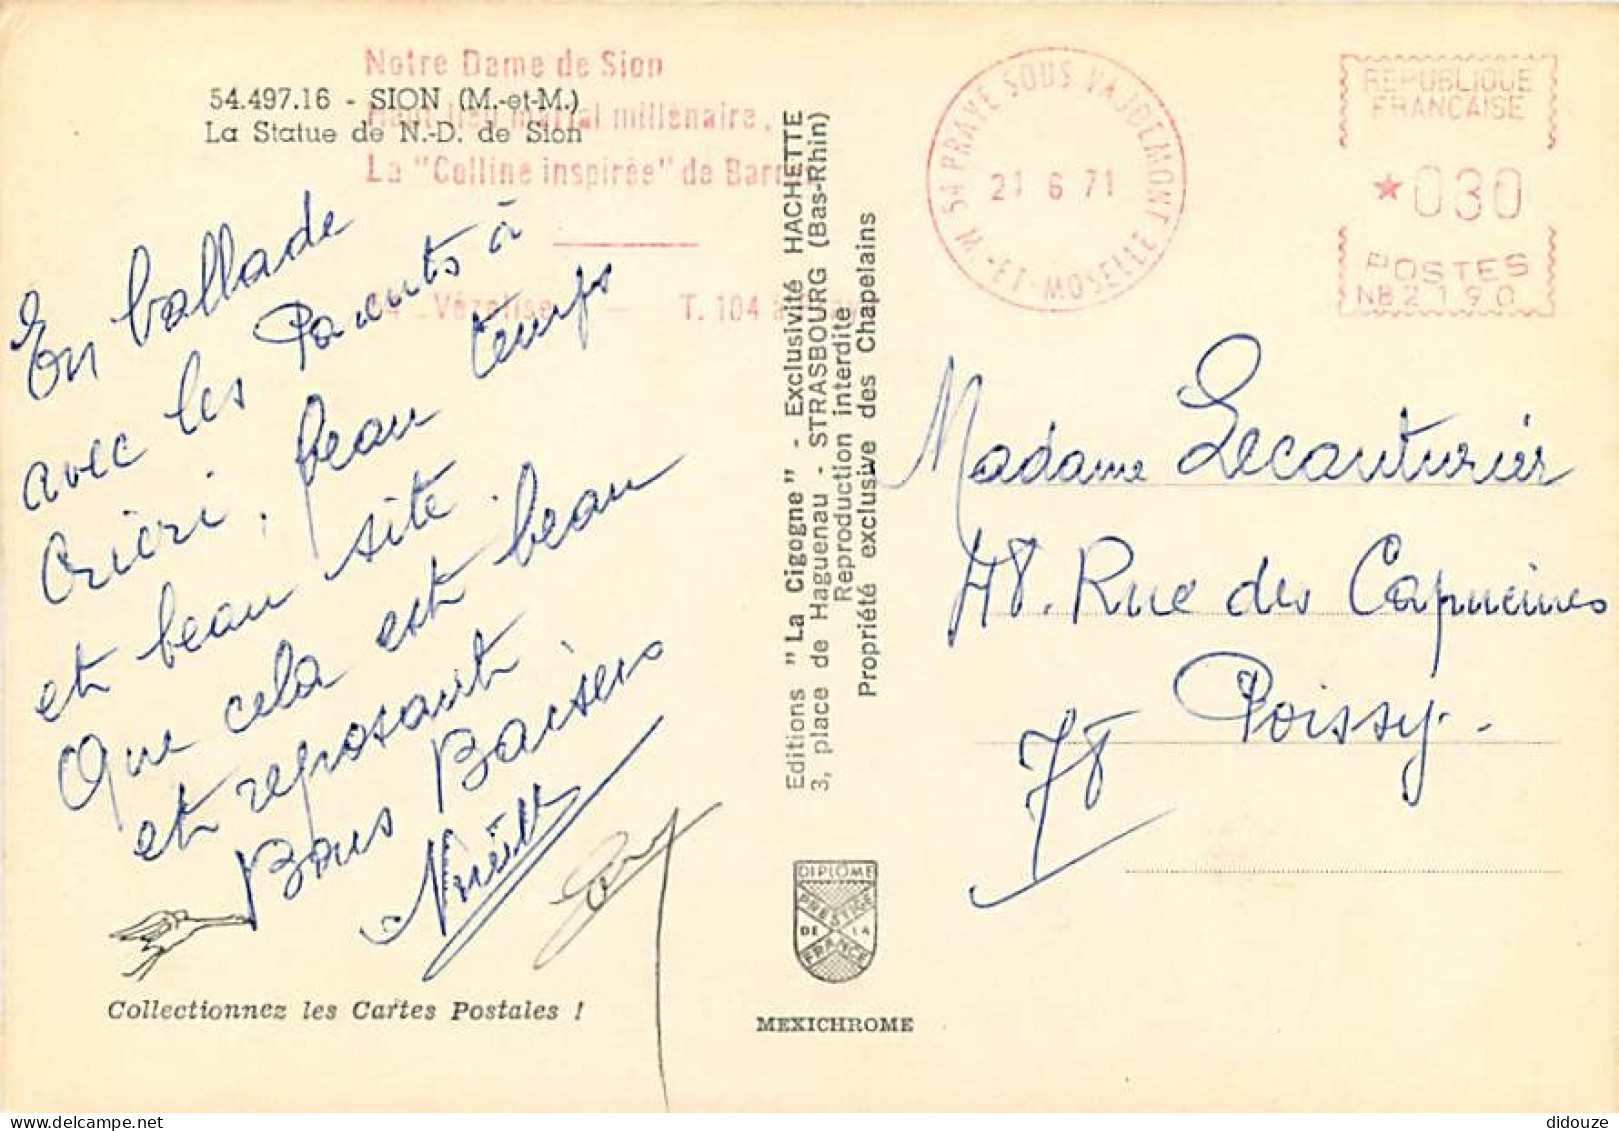 Notre Dame de Sion
54.497.16 - SION (M.-et-M.)
Haut lieu marial millénaire.
La Statue de N.-D. de Sion
La "Colline inspirée" de
Vézelise — T. 104 à
En ballade
avec les Parents à
beau temps
et beau site.
Que cela est beau
et reposant
Bons Baisers
Collectionnez les Cartes Postales !
Editions "La Cigogne" - Exclusivité HACHETTE
3, place de Haguenau - STRASBOURG (Bas-Rhin)
Reproduction interdite
Propriété exclusive des Chapelains
DIPLÔME
PRESTIGE
DE LA
FRANCE
MEXICHROME
54 PRAYE SOUS VAUDEMONT
21 6 71
M.-ET-MOSELLE
REPUBLIQUE
FRANCAISE
*030
POSTES
NB 2190
Madame Lecanturier
48. Rue des Capucines
Poissy.-
78
didouze